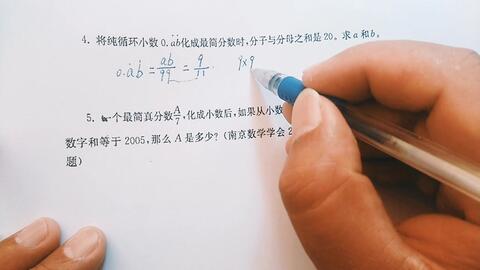 4. 将纯循环小数 0.ȧḃ化成最简分数时,分子与分母之和是 20。求 a 和 b。
0.ȧḃ = ab/99 = 9/11 9×9
5. 一个最简真分数A/7,化成小数后,如果从小数
数字和等于 2005,那么 A 是多少?(南京数学学会 2
题)